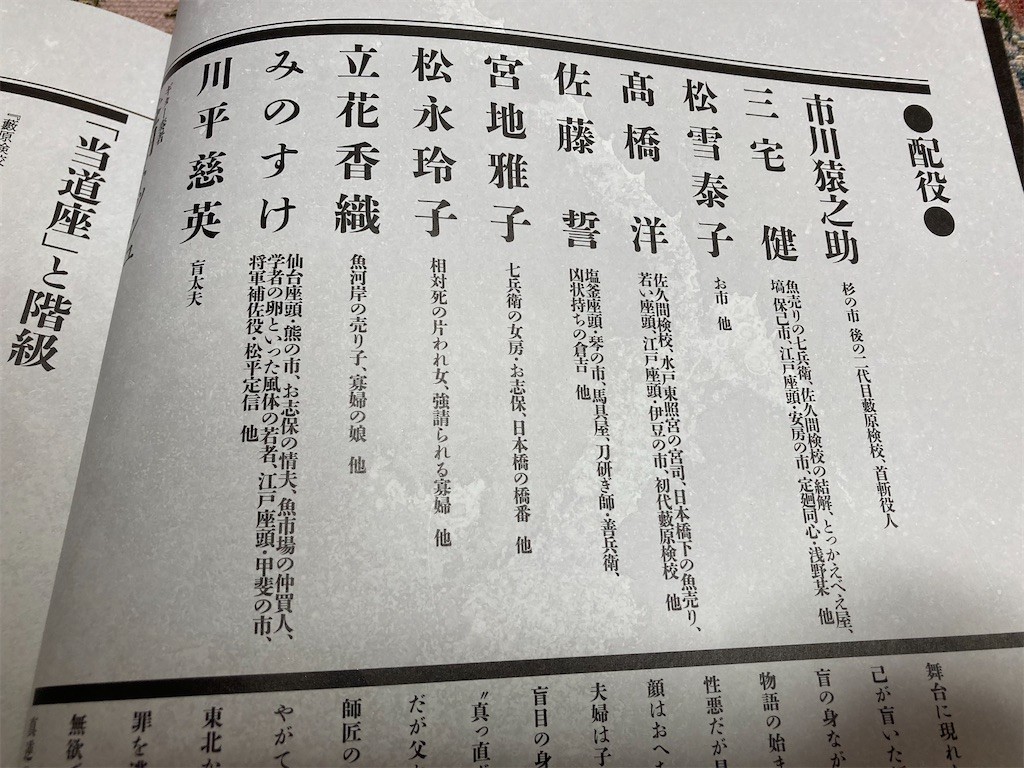 ●配役●
市川猿之助
杉の市 後の二代目藪原検校、首斬役人
三宅 健
魚売りの七兵衛、佐久間検校の結解、とっかえべえ屋、
塙保己市、江戸座頭・安房の市、定廻同心・浅野某 他
松雪泰子
お市 他
髙橋 洋
佐久間検校、水戸東照宮の宮司、日本橋下の魚売り、
若い座頭、江戸座頭・伊豆の市、初代藪原検校 他
佐藤 誓
塩釜座頭・琴の市、馬具屋、刀研ぎ師・善兵衛、
凶状持ちの倉吉 他
宮地雅子
七兵衛の女房・お志保、日本橋の橋番 他
松永玲子
相対死の片われ女、強請られる寡婦 他
立花香織
魚河岸の売り子、寡婦の娘 他
みのすけ
仙台座頭・熊の市、お志保の情夫、魚市場の仲買人、
学者の卵といった風体の若者、江戸座頭・甲斐の市、
将軍補佐役・松平定信 他
川平慈英
盲太夫
舞台に現れ
己が盲いた
盲の身なが
物語の始ま
性悪だが
顔はおへ
夫婦は子
盲目の身
〝真っ直
だが父
師匠の
やがて
東北か
罪を
無欲
「当道座」と階級